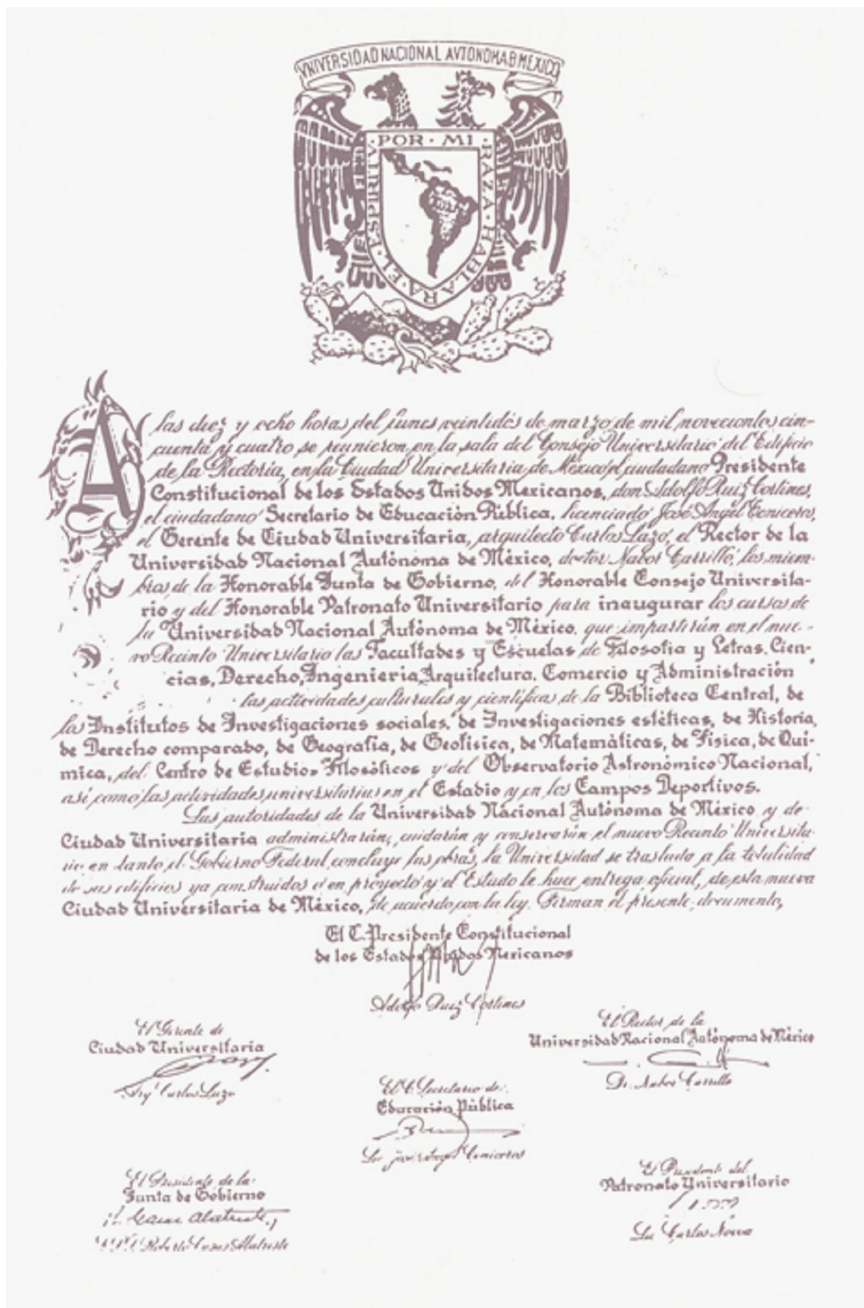 VNIVERSIDAD NACIONAL AVTONOMA D MEXICO
POR · MI · RAZA · HABLARA · EL · ESPIRITV
A
las diez y ocho horas del lunes veintidós de marzo de mil novecientos cin-
cuenta y cuatro se reunieron en la sala del Consejo Universitario del Edificio
de la Rectoría, en la Ciudad Universitaria de México, el ciudadano Presidente
Constitucional de los Estados Unidos Mexicanos, don Adolfo Ruiz Cortines,
el ciudadano Secretario de Educación Pública, licenciado José Angel Ceniceros,
el Gerente de Ciudad Universitaria, arquitecto Carlos Lazo, el Rector de la
Universidad Nacional Autónoma de México, doctor Nabor Carrillo, los miem-
bros de la Honorable Junta de Gobierno, del Honorable Consejo Universita-
rio y del Honorable Patronato Universitario para inaugurar los cursos de
la Universidad Nacional Autónoma de México, que impartirán en el nue-
vo Recinto Universitario las Facultades y Escuelas de Filosofia y Letras, Cien-
cias, Derecho, Ingenieria, Arquitectura, Comercio y Administración
las actividades culturales y científicas de la Biblioteca Central, de
los Institutos de Investigaciones sociales, de Investigaciones estéticas, de Historia,
de Derecho comparado, de Geografía, de Geofísica, de Matemáticas, de Física, de Quí-
mica, del Centro de Estudios Filosóficos y del Observatorio Astronómico Nacional,
así como las actividades universitarias en el Estadio y en los Campos Deportivos.
Las autoridades de la Universidad Nacional Autónoma de México y de
Ciudad Universitaria administrarán, cuidarán y conservarán el nuevo Recinto Universita-
rio en tanto el Gobierno Federal concluye las obras, la Universidad se traslada a la totalidad
de sus edificios ya construidos o en proyecto y el Estado le hace entrega oficial, de esta nueva
Ciudad Universitaria de México, de acuerdo con la ley. Firman el presente documento,
El C. Presidente Constitucional
de los Estados Unidos Mexicanos
Adolfo Ruiz Cortines
El Gerente de
Ciudad Universitaria
Arq. Carlos Lazo
El Rector de la
Universidad Nacional Autónoma de México
Dr. Nabor Carrillo
El C. Secretario de
Educación Pública
Lic. José Angel Ceniceros
El Presidente de la
Junta de Gobierno
Roberto Casas Alatriste
El Presidente del
Patronato Universitario
Lic. Carlos Novoa